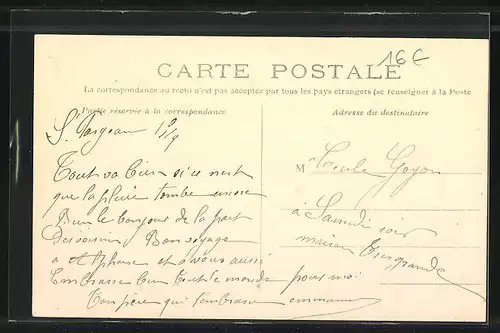 16€
CARTE POSTALE
La correspondance au recto n'est pas acceptée par tous les pays étrangers (se renseigner à la Poste
Partie réservée à la correspondance
Adresse du destinataire
Tout va bien si ce n'est
que la pluie tombe encore
le bonjour de la part
Bon voyage
à Alphonse et à vous aussi
Embrasse bien tout le monde pour moi
Ton père qui t'embrasse
M
à Samedi soir
maison